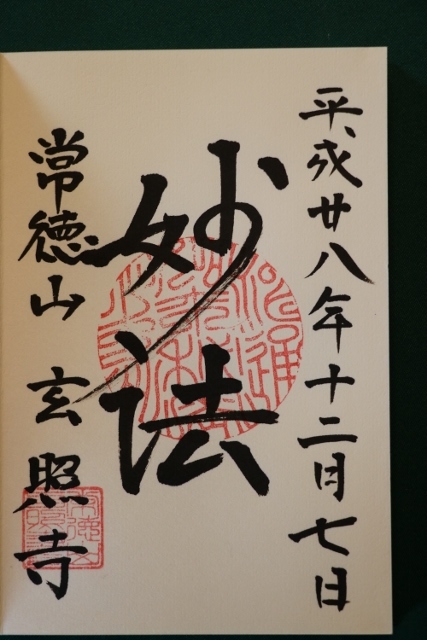 平成廿八年十二月七日
妙法
常徳山 玄照寺